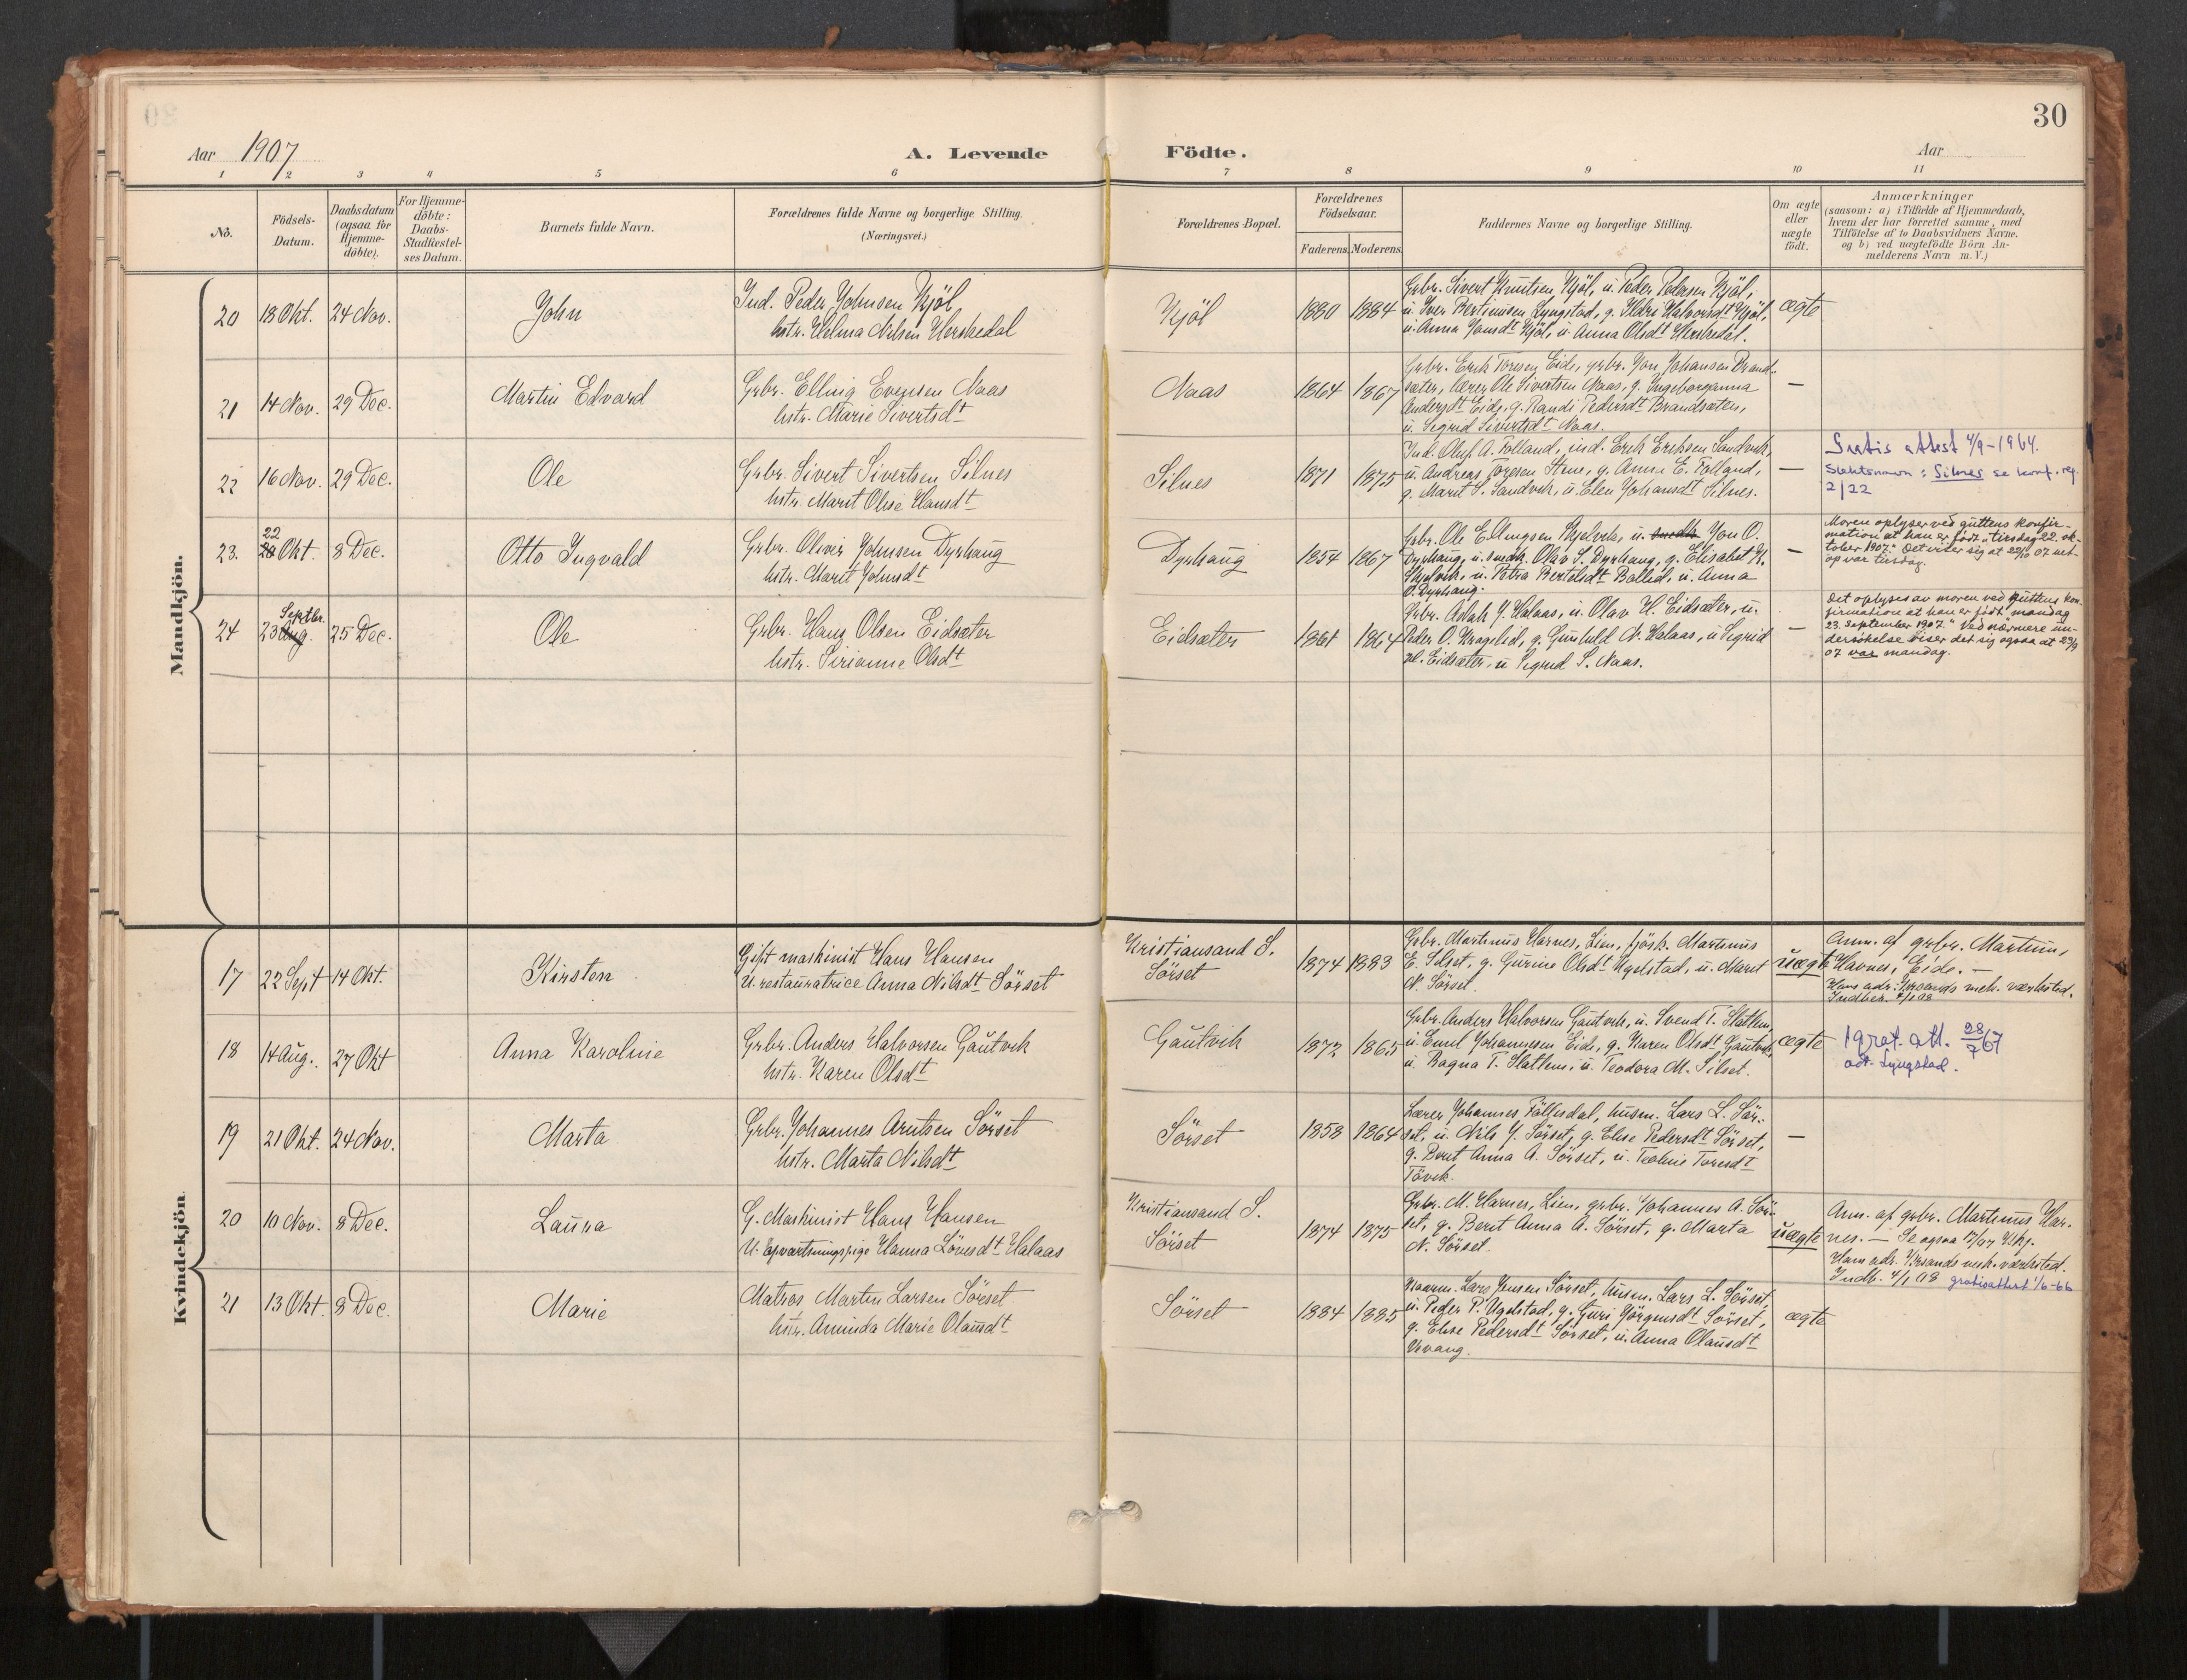 30
Aar 1907
A. Levende Födte.
Aar
1 2 3 4 5 6 7 8 9 10 11
No.
Födsels-
Datum.
Daabsdatum
(ogsaa for
Hjemme-
döbte).
For Hjemme-
döbte:
Daabs-
Stadfæstel-
ses Datum.
Barnets fulde Navn.
Forældrenes fulde Navne og borgerlige Stilling.
(Næringsvei.)
Forældrenes Bopæl.
Forældrenes
Födselsaar.
Faderens. Moderens.
Faddernes Navne og borgerlige Stilling.
Om ægte
eller
uægte
födt.
Anmærkninger
(saasom: a) i Tilfælde af Hjemmedaab,
hvem der har forrettet samme, med
Tilföielse af to Daabsvidners Navne.
og b) ved uægtefödte Börn An-
melderens Navn m.V.)
Mandkjön.
20 18 Okt. 24 Nov. John
Ind. Peder Johnsen Kjöl
hstr. Helma Nilsen Herskedal
Kjöl 1880 1884
Grbr. Sivert Knutsen Kjöl, u. Peder Pedersen Kjöl,
u. Iver Bertinusen Lyngstad, g. Ildri Halvorsdt Kjöl,
u. Anna Jonsdt Kjöl, u. Anna Olsdt Herskedal.
ægte
21 14 Nov. 29 Dec. Martin Edvard
Grbr. Elling Evensen Naas
hstr. Marie Sivertsdt
Naas 1864 1867
Grbr. Erik Toresen Eide, grbr. Jon Johansen Brand-
sæter, lærer Ole Sivertsen Naas, g. Ingeborganna
Andersdt Eide, g. Randi Pedersdt Brandsæter,
u. Sigrid Sivertsdt Naas.
—
22 16 Nov. 29 Dec. Ole
Grbr. Sivert Sivertsen Silnes
hstr. Marit Olise Hansdt
Silnes 1871 1875
Ind. Oluf A. Folland, ind. Erik Eriksen Sandvik,
u. Andreas Toresen Stene, g. Anne E. Folland,
g. Marit S. Sandvik, u. Elen Johansdt Silnes.
—
Gratis attest 4/9-1964.
Slektsnavn: Silnes se konf. reg.
2/22
23. 22
20 Okt. 8 Dec. Otto Ingvald
Grbr. Oliver Johnsen Dyrhaug
hstr. Marit Johnsdt
Dyrhaug 1854 1867
Grbr. Ole Ellingsen Skjelvik, u. smedk Jon O.
Dyrhaug, u. smedk. Olav S. Dyrhaug, g. Elisabet K.
Skjelvik, u. Petra Bertelsdt Bollied, u. Anna
O. Dyrhaug.
—
Moren oplyser ved guttens konfir-
mation at han er født „tirsdag 22. ok-
tober 1907." Det viser sig at 22/10 07 net-
op var tirsdag.
24 Septbr.
23 Aug. 25 Dec. Ole
Grbr. Hans Olsen Eidsæter
hstr. Sirianne Olsdt
Eidsæter 1861 1864
Grbr. Aslak J. Halaas, u. Olav H. Eidsæter, u.
Peder O. Kragelied, g. Gunhild N. Halaas, u Sigrid
H. Eidsæter, u Sigrid S. Naas.
—
Det oplyses av moren ved guttens kon-
firmation at han er født „mandag
23. september 1907." Ved nærmere un-
dersøkelse viser det sig ogsaa at 23/9
07 var mandag.
Kvindekjön.
17 22 Sept 14 Okt. Kirsten
Gift maskinist Hans Hansen
U. restauratrice Anna Nilsdt Sörset
Kristiansand S.
Sörset 1874 1883
Grbr. Martinus Harnes, Lien, fjösk. Martinus
E. Silset, g. Gurine Olsdt Ugelstad, u. Marit
N. Sörset.
uægte
Anm. af grbr. Martinus
Harnes, Eide. —
Hans adr: Krsands mek. værksted.
Indber. 4/1 08
18 14 Aug. 27 Okt Anna Karoline
Grbr. Anders Halvorsen Gautvik
hstr. Karen Olsdt
Gautvik 1872 1865
Grbr. Anders Halvorsen Gautvik, u. Svend T. Slatlem,
u. Emil Johannesen Eide, g. Karen Olsdt Gautvik,
u. Ragna T. Slatlem, u. Teodora M. Silset.
ægte
1 grat. att. 28/7 67
adr. Lyngstad.
19 21 Okt. 24 Nov. Marta
Grbr. Johannes Arntsen Sörset
hstr. Marta Nilsdt
Sörset 1858 1864
Lærer Johannes Fältesdal, husm. Lars L. Sör-
set, u. Nils J. Sörset, g. Elise Pedersdt Sörset,
g. Berit Anna A. Sörset, u. Teoline Toresdt
Tövik.
—
20 10 Nov. 8 Dec. Laura
G. Maskinist Hans Hansen
U. Opvartningspige Hanna Lönsdt Halaas
Kristiansand S.
Sörset 1874 1875
Grbr. M. Harnes, Lien, grbr. Johannes A. Sör-
set, g. Berit Anna A. Sörset, g. Marta
N. Sörset.
uægte
Anm. af grbr. Martinus Har-
nes. — Se ogsaa 17/07 Kkj.
Hans adr. Krsands mek. værksted.
Indb. 4/1 08 gratisattest 1/6-66
21 13 Okt. 8 Dec. Marie
Matros Martin Larsen Sörset
hstr. Aminda Marie Olausdt
Sörset 1884 1885
Kaarm. Lars Jensen Sörset, husm. Lars L. Sörset,
u. Peder P. Ugelstad, g. Guri Jörgensdt Sörset,
g. Elise Pedersdt Sörset, u. Anna Olausdt
Vevang.
ægte